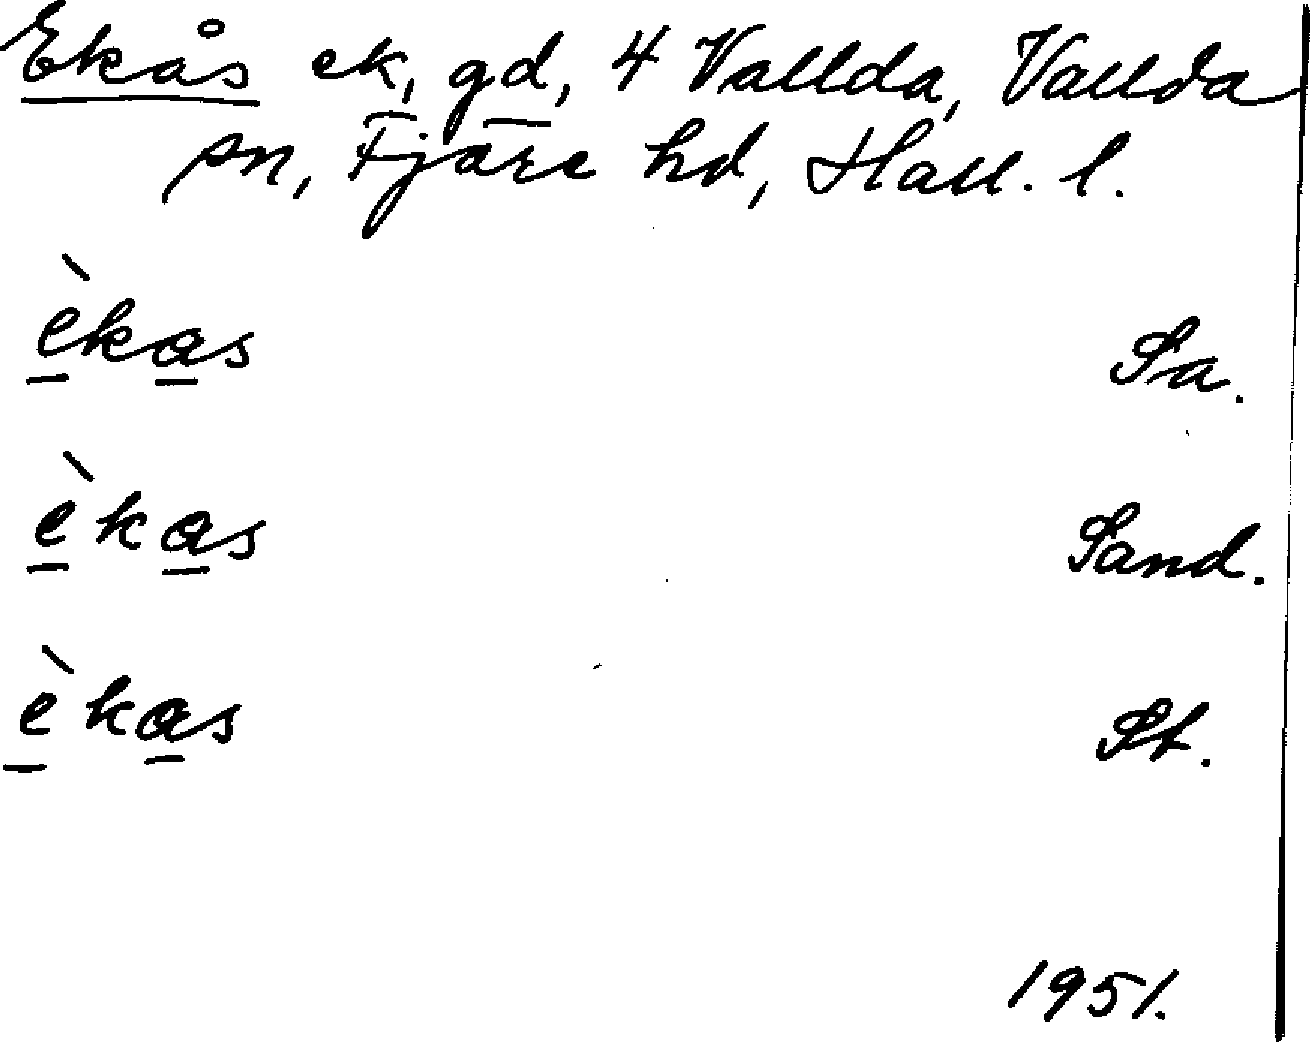 Ekås ek, gd, 4 Vallda, Vallda
sn, Fjäre hd, Hall. l.
èkas Sa.
èkas Sand.
èkas St.
1951.